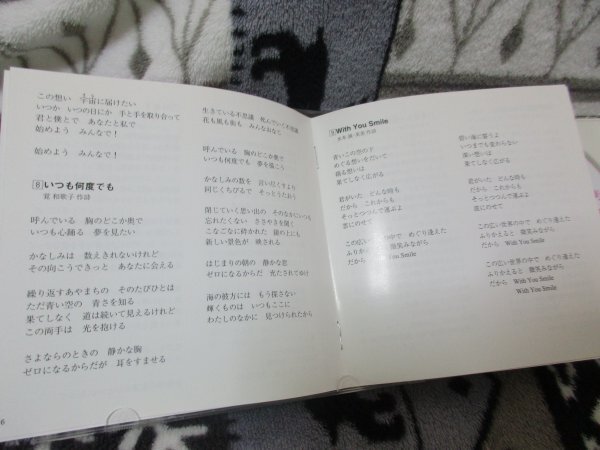 この想い 宇宙に届けたい
いつか いつの日にか 手と手を取り合って
君と僕とで あなたと私で
始めよう みんなで！
始めよう みんなで！
8 いつも何度でも
覚 和歌子 作詩
呼んでいる 胸のどこか奥で
いつも心踊る 夢を見たい
かなしみは 数えきれないけれど
その向こうできっと あなたに会える
繰り返すあやまちの そのたびひとは
ただ青い空の 青さを知る
果てしなく 道は続いて見えるけれど
この両手は 光を抱ける
さよならのときの 静かな胸
ゼロになるからだが 耳をすませる
6
生きている不思議 死んでいく不思議
花も風も街も みんなおなじ
呼んでいる 胸のどこか奥で
いつも何度でも 夢を描こう
かなしみの数を 言い尽くすより
同じくちびるで そっとうたおう
閉じていく思い出の そのなかにいつも
忘れたくない ささやきを聞く
こなごなに砕かれた 鏡の上にも
新しい景色が 映される
はじまりの朝の 静かな窓
ゼロになるからだ 充たされてゆけ
海の彼方には もう探さない
輝くものは いつもここに
わたしのなかに 見つけられたから
9 With You Smile
青いこの空の下
めぐる想いをだいて
限りなく広がる
君がいた どんな時も
だから これからも
そっとつつんで運ぶよ
雲にのせて
この広い世界の中で めぐり逢えた
ふりかえると 微笑みながら
だから With You Smile
碧い海に誓うよ
いつまでも変わらない
深い想いは
果てしなく広がる
君がいた どんな時も
だから これからも
そっとつつんで運ぶよ
風にのせて
この広い世界の中で めぐり逢えた
ふりかえると 微笑みながら
だから With You Smile
With You Smile